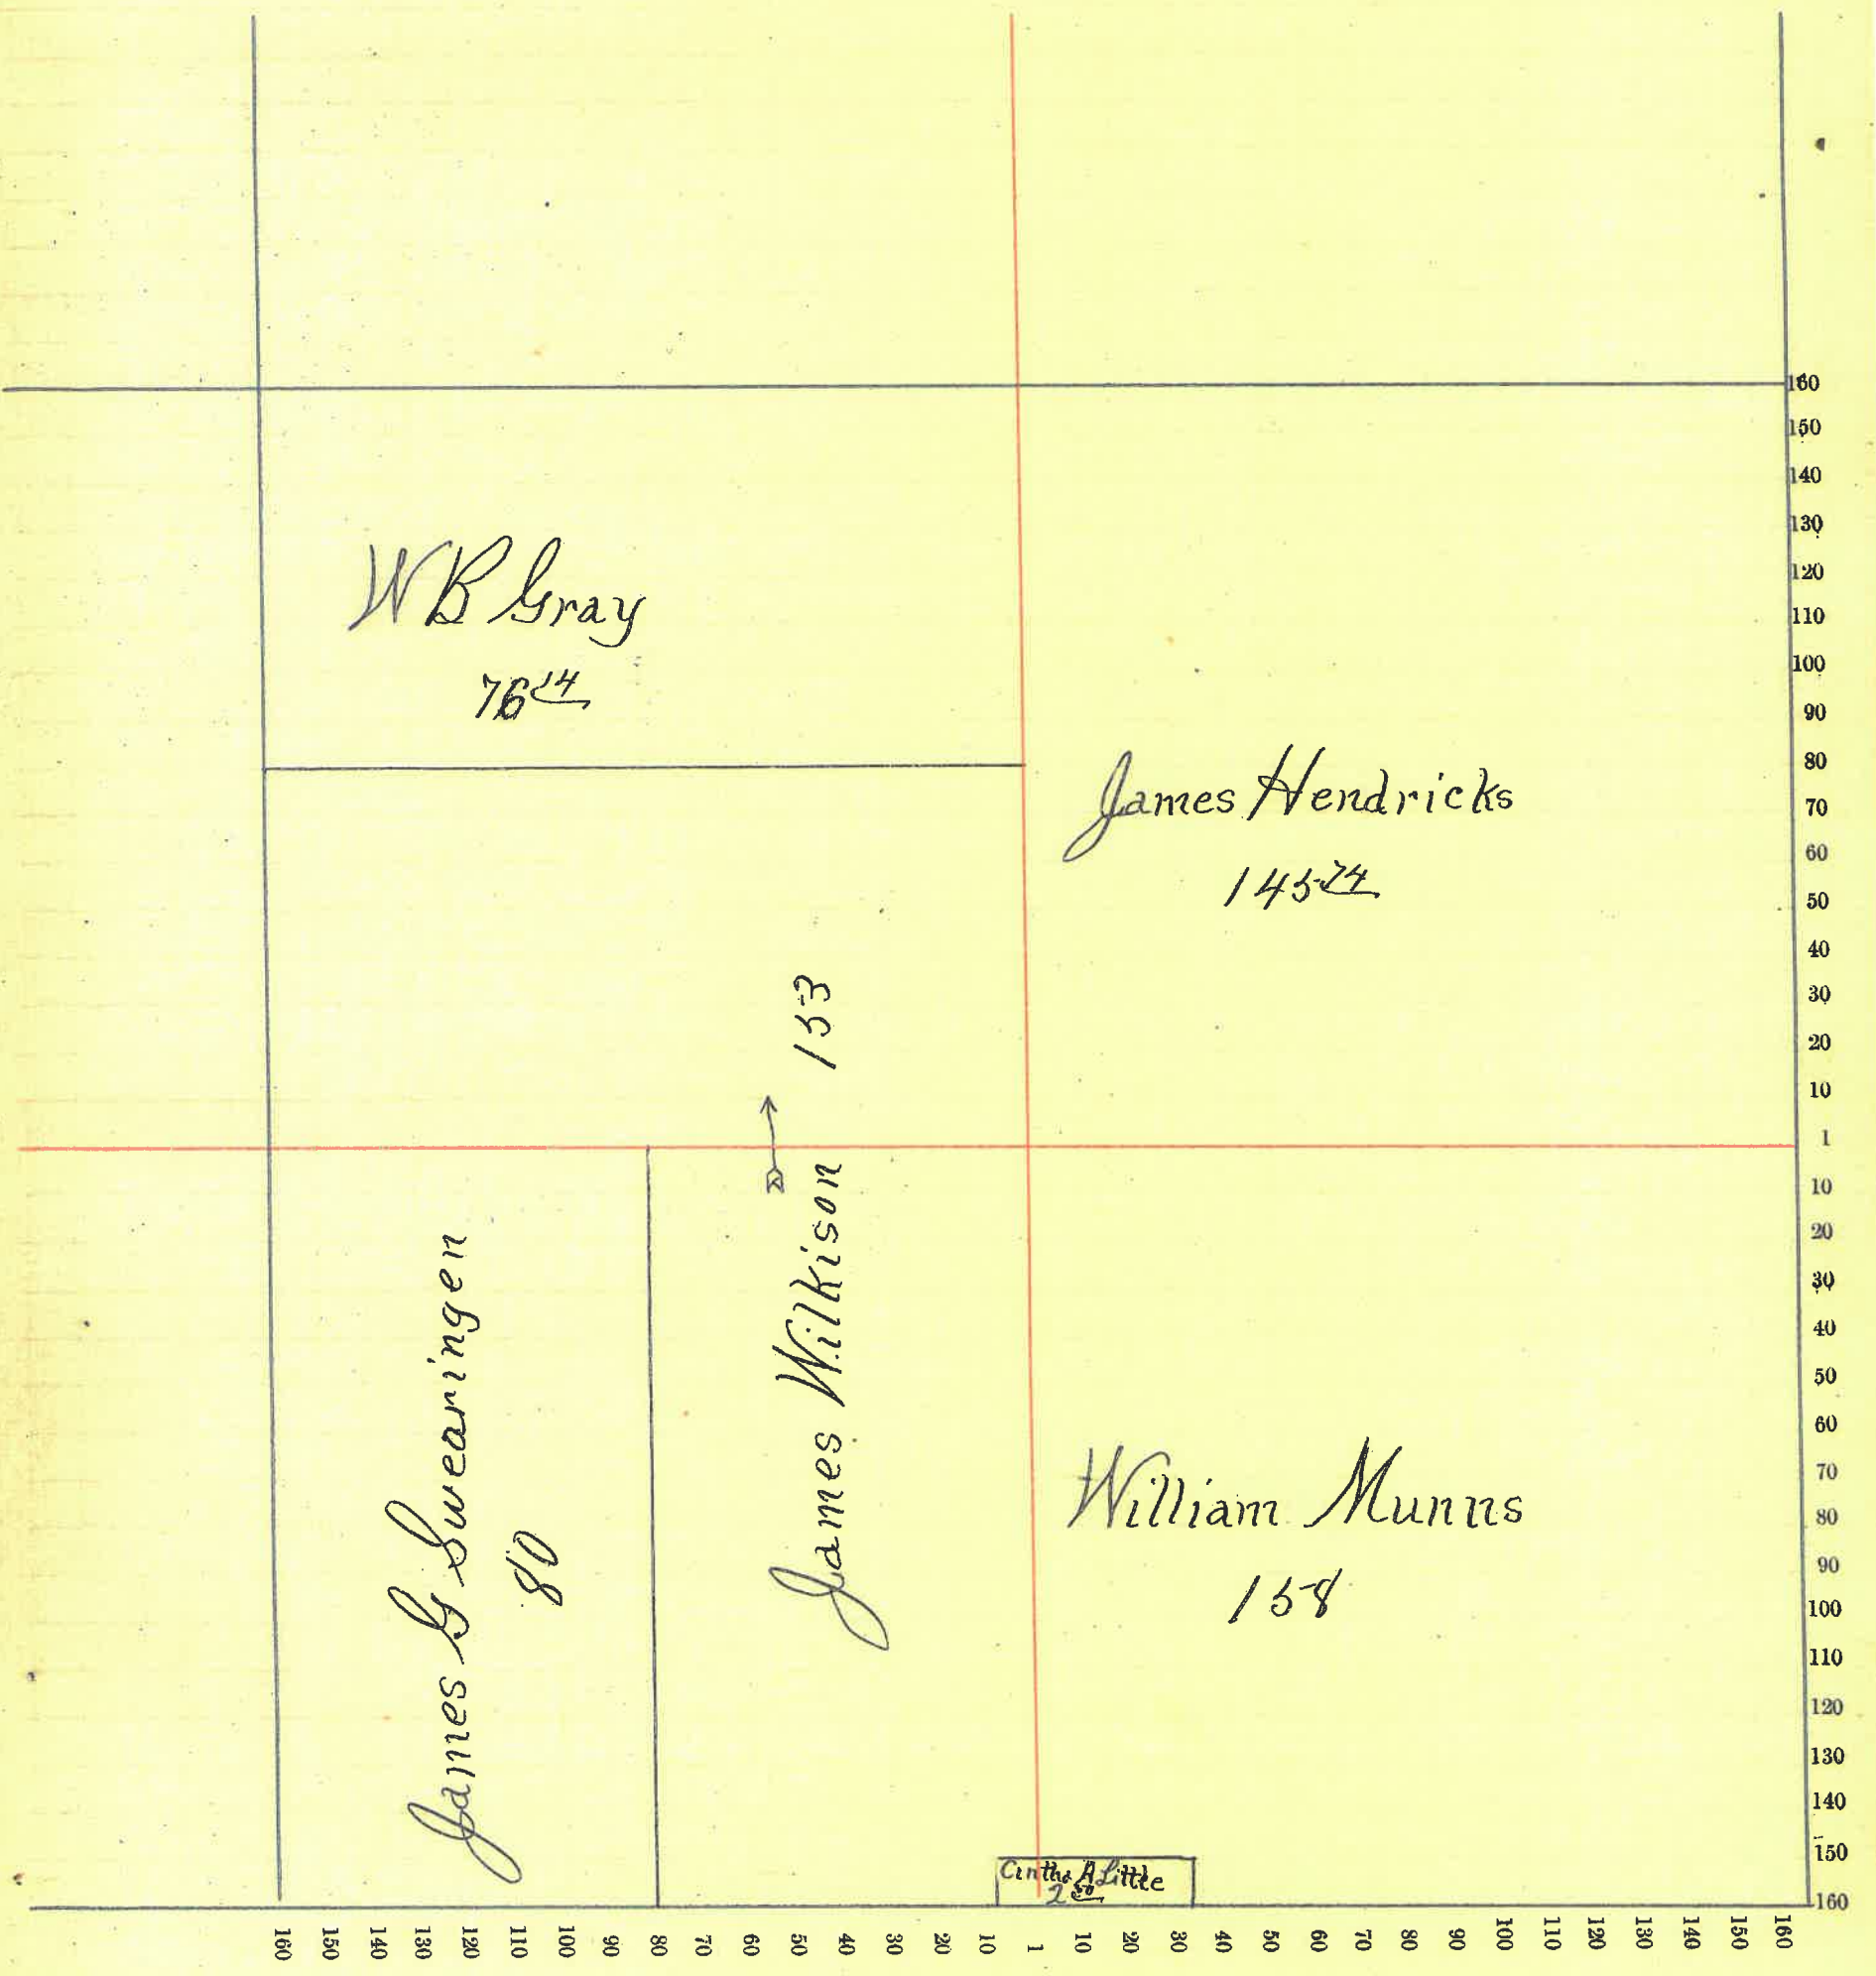 W B Gray
76 14
James Hendricks
145 74
James Wilkison 153
James G Swearingen
80
William Munns
158
A Little
2 50
160
150
140
130
120
110
100
90
80
70
60
50
40
30
20
10
1
10
20
30
40
50
60
70
80
90
100
110
120
130
140
150
160
160 150 140 130 120 110 100 90 80 70 60 50 40 30 20 10 1 10 20 30 40 50 60 70 80 90 100 110 120 130 140 150 160